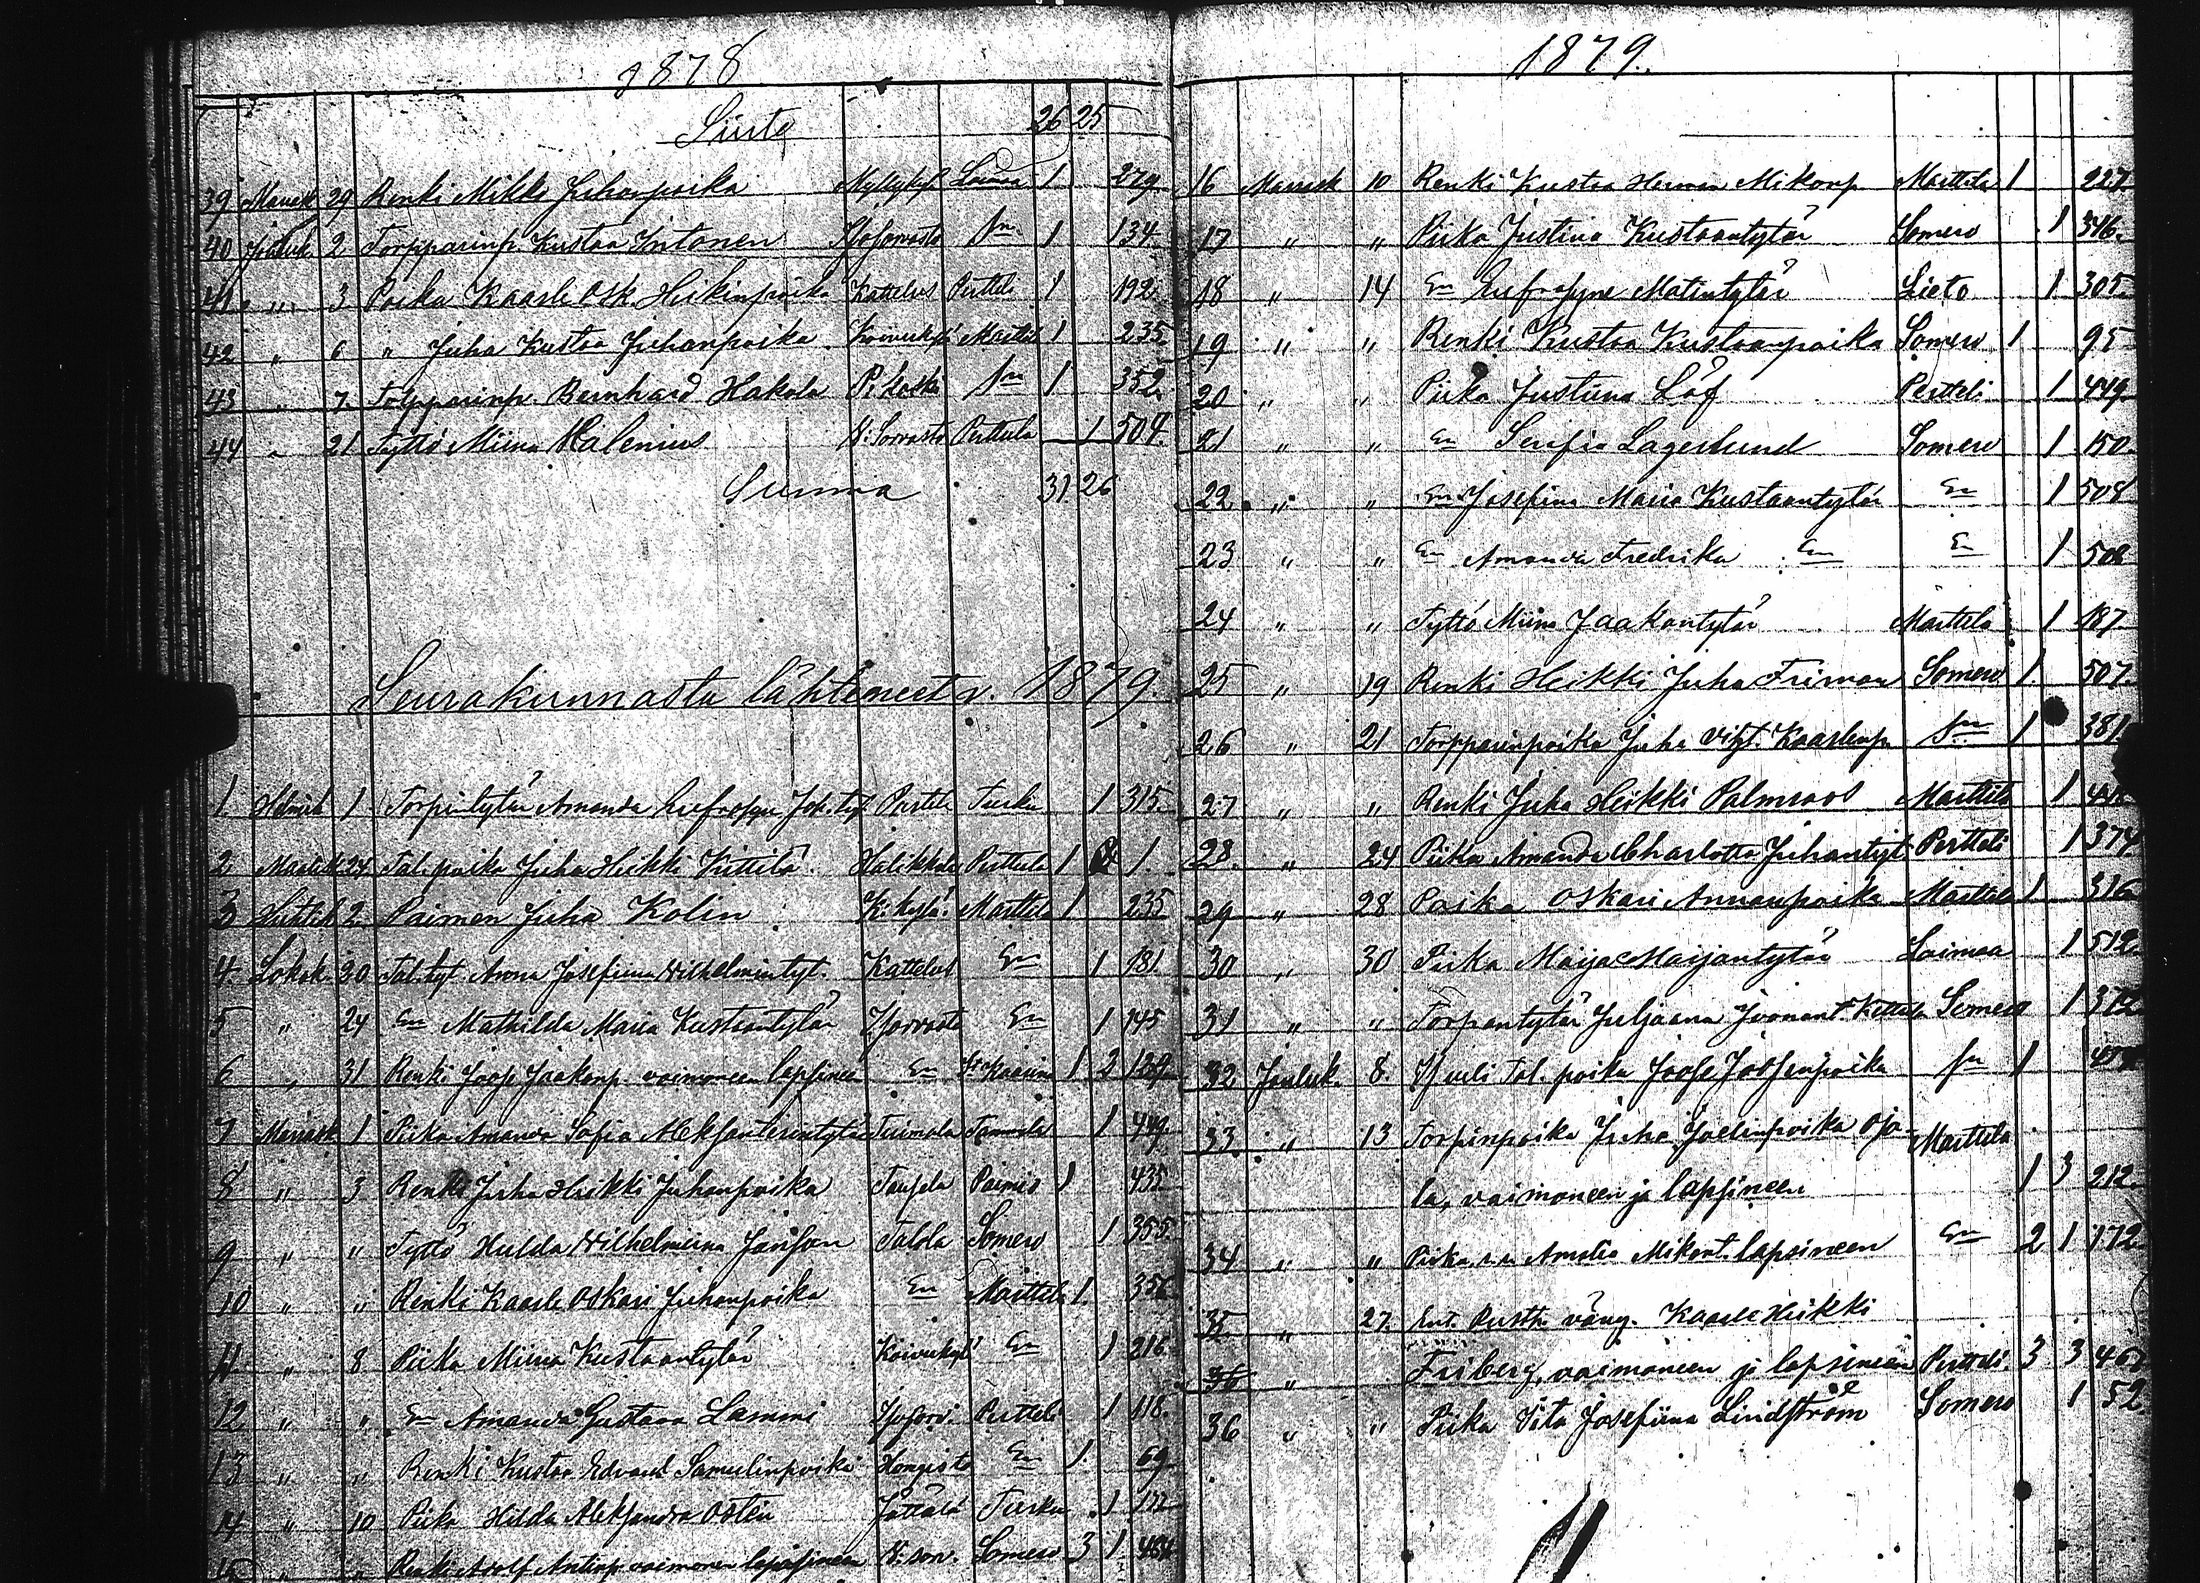 1878
Siirto 26 25
39 Marrask 29 Renki Mikki Juhanpoika Myllykyl Loimaa 1 279
40 Jouluk 2 Torpparinp. Kustaa Intonen Isosorvasto Sm 1 134
41 " 3 Poika Kaarle Osk. Heikinpoika Kattelus Pertteli 1 192
42 " 6 " Juha Kustaa Juhanpoika Koivukylä Marttila 1 235
43 " 7 Torpparinp. Bernhard Hakala P. koski Sm 1 352
44 " 21 Tyttö Miina Walenius V: Sorvasto Perttula 1 504
Summa 31 26
Seurakunnasta lähteneet v. 1879.
1. Helmik 1 Torpintytär Amanda Eufrosyn Joh. tyt Pertteli Turku 1 315.
2 Maalisk 24 Tal. poika Juha Heikki Kittilä Halikkola Perttula 1 1.
3 Huhtik 2 Paimen Juha Kolin K: kylä Marttila 1 235
4. Lokak 20 Tal. tyt Anna Josefiina Wilhelmintyt. Kattelus En 1 181
5 " 24 En Mathilda Maria Kustaantytär Isosorvasto En 1 145
6 " 31 Renki Joose Jaakonp. vaimoneen lapsineen En St Kaarina 1 2 129
7 Marrask 1 Piika Amanda Sofia Aleksanterintytär Tuimala Tammela 1 449
8 " 3 Renki Juha Heikki Juhanpoika Taipela Paimio 1 435
9 " " Tyttö Hulda Wilhelmiina Jansson Talola Somero 1 355
10 " " Renki Kaarle Oskari Juhanpoika En Marttila 1. 356
11 " 8 Piika Miina Kustaantytär Koivukyl En 1 216
12 " " En Amanda Gustava Lammi Isosorv. Pertteli 1 118.
13 " " Renki Kustaa Edvard Samulinpoika Hongisto En 1 69
14 " 10 Piika Hilda Aleksandra Osten Jättälä Turku 1 177
15 " " Renki Adolf Antinp vaimoneen lapsineen V: sorv. Somero 3 1 464
1879.
16 Marrask 10 Renki Kustaa Herman Mikonp Marttila 1 227
17 " " Piika Justina Kustaantytär Somero 1 346.
18 " 14 En Eufrosyne Matintytär Lieto 1 305.
19 " " Renki Kustaa Kustaanpoika Somero 1 95
20 " " Piika Justiina Löf Pertteli 1 449
21 " " En Serafia Lagerlund Somero 1 150.
22. " " En Josefina Maria Kustaantytär En 1 508
23 " " En Amanda Fredrika En En 1 508
24 " " Tyttö Miina Jaakontytär Marttila 1 187.
25 " 19 Renki Heikki Juha Friman Somero 1. 507.
26 " 21 Torpparinpoika Juha Vikt. Kaarlenp Sm 1 381.
27 " " Renki Juha Heikki Palmroos Marttila 1
28. " 24 Piika Amanda Charlotta Juhantyt Pertteli 1 374
29 " 28 Poika Oskari Annanpoika Marttila 1 316
30 " 30 Piika Maija Maijantytär Loimaa 1 512.
31 " " Torpantytär Juljaana Joonant. Kettula Somero 1 372
32 Jouluk. 8. Itsell. Tal. poika Joose Joosepinpoika Sm 1
33. " 13 Torpinpoika Juha Joelinpoika Oja- Marttila
la, vaimoneen ja lapsineen 1 3 212.
34 " " Piika Amalia Mikont. lapsineen En 2 1 172
35 " 27. Ent. väng. Kaarle Heikki
36 " Friberg, vaimoneen ja lapsineen Pertteli. 3 3 46
36 " " Piika Vita Josefiina Lindström Somero 1 52.